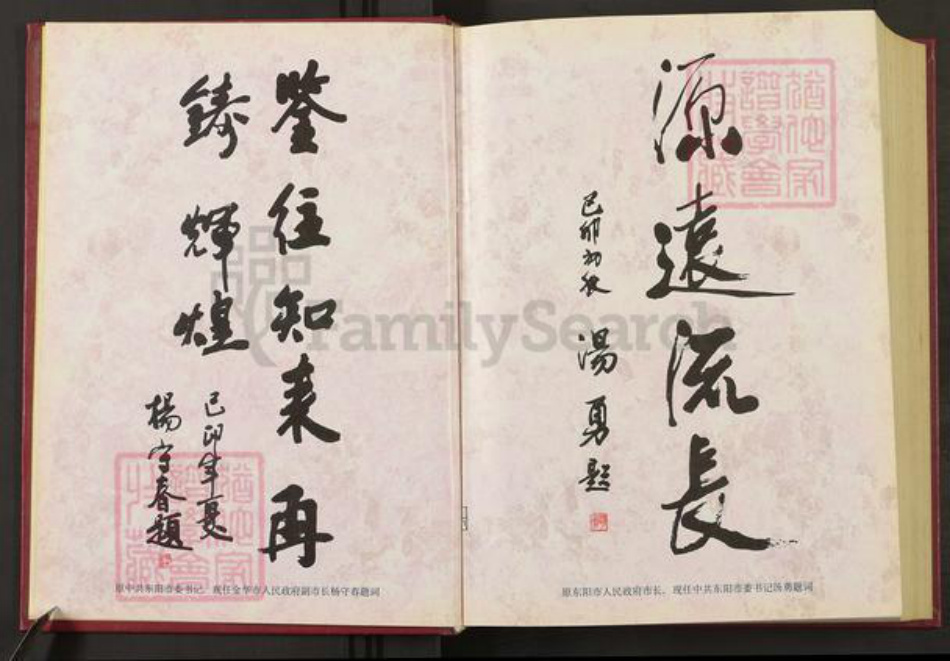 源遠流長
己卯初秋
湯勇題
鉴往知来再
鑄輝煌
己卯年夏
楊守春題
原东阳市人民政府市长,现任中共东阳市委书记汤勇题词
原中共东阳市委书记,现任金华市人民政府副市长杨守春题词
FamilySearch